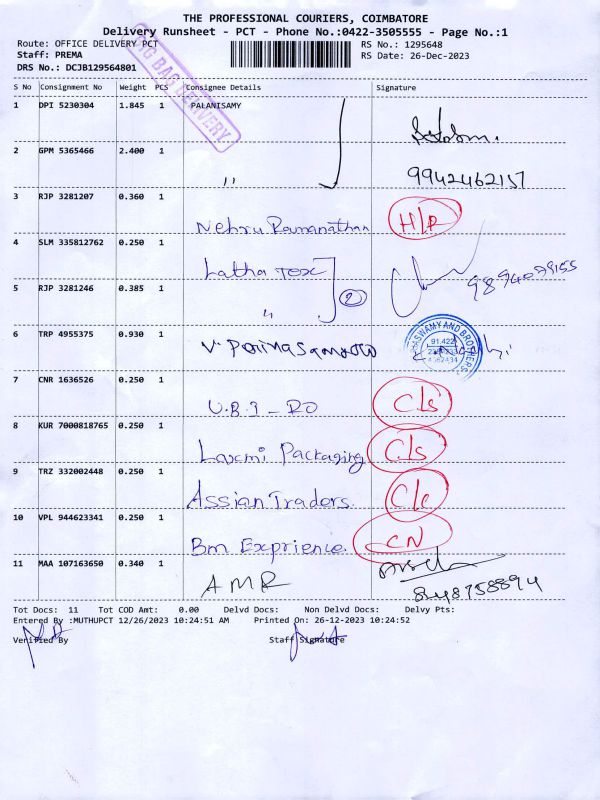 THE PROFESSIONAL COURIERS, COIMBATORE
Delivery Runsheet - PCT - Phone No.:0422-3505555 - Page No.:1
Route: OFFICE DELIVERY PCT
RS No.: 1295648
Staff: PREMA
RS Date: 26-Dec-2023
DRS No.: DCJB129564801
BAG DELIVERY
S No Consignment No Weight PCS Consignee Details Signature
1 DPI 5230304 1.845 1 PALANISAMY
2 GPM 5365466 2.400 1 ,, 9942462157
3 RJP 3281207 0.360 1 Nehru Ramanathan H/R
4 SLM 335812762 0.250 1 Latha Tex
5 RJP 3281246 0.385 1 ,, 2
6 TRP 4955375 0.930 1 V.
SWAMY AND BROTHERS
7 CNR 1636526 0.250 1 U.B.I - RO C/s
8 KUR 7000818765 0.250 1 Laxmi Packaging C/s
9 TRZ 332002448 0.250 1 Assian Traders.
10 VPL 944623341 0.250 1 Bm Exprience. CN
11 MAA 107163650 0.340 1 AMR 8448758894
Tot Docs: 11 Tot COD Amt: 0.00 Delvd Docs: Non Delvd Docs: Delvy Pts:
Entered By :MUTHUPCT 12/26/2023 10:24:51 AM Printed On: 26-12-2023 10:24:52
Verified By Staff Signature